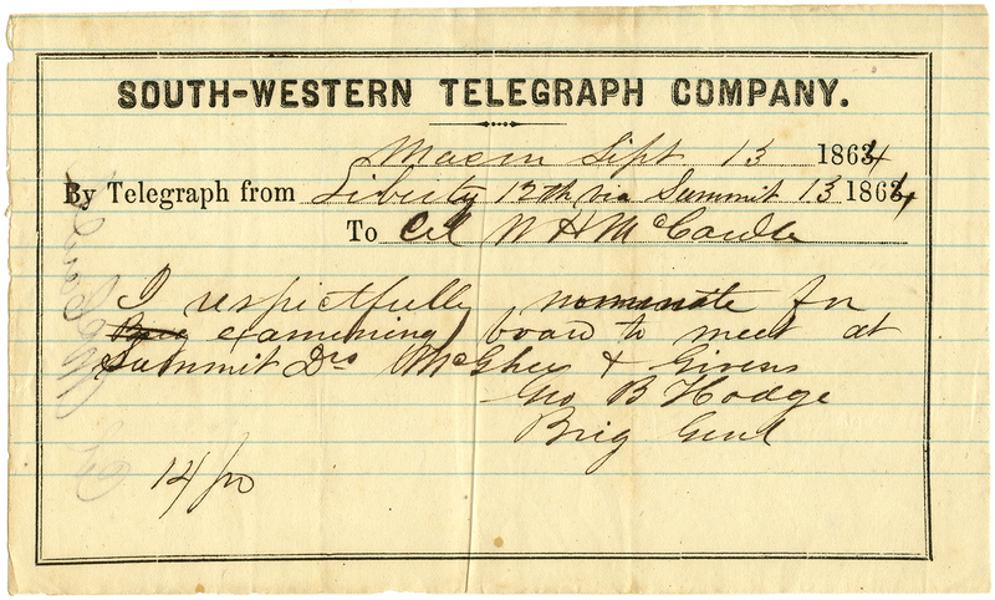 SOUTH-WESTERN TELEGRAPH COMPANY.
Macon Sept 13 1864
By Telegraph from Liberty 12th via Summit 13 1864
To Col W H McCardle
I respectfully nominate for
Brig examining board to meet at
Summit Drs McGhee & Givens
Geo B Hodge
Brig Genl
14/